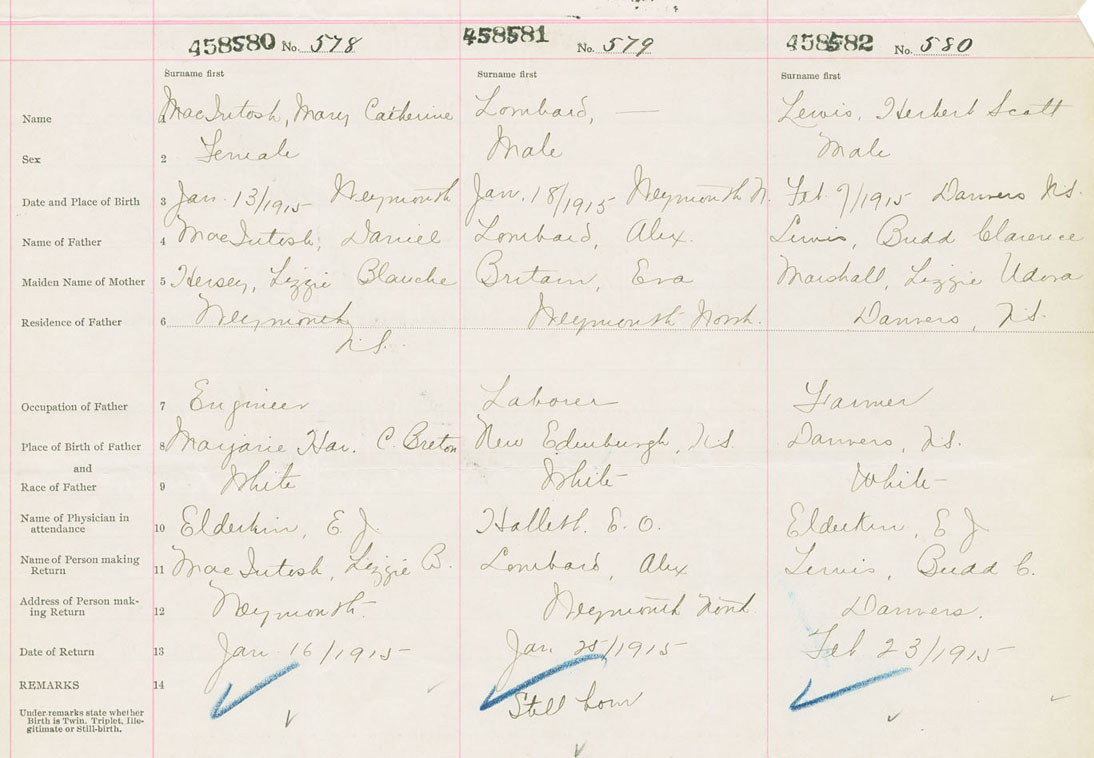 458580 No. 578 458581 No. 579 458582 No. 580
Surname first Surname first Surname first
Name 1 MacIntosh, Mary Catherine Lombard, — Lewis, Herbert Scott
Sex 2 Female Male Male
Date and Place of Birth 3 Jan. 13/1915 Weymouth Jan. 18/1915 Weymouth N. Feb 7/1915 Danvers N.S.
Name of Father 4 MacIntosh, Daniel Lombard, Alex. Lewis, Budd Clarence
Maiden Name of Mother 5 Hersey, Lizzie Blanche Britain, Eva Marshall, Lizzie Udora
Residence of Father 6 Weymouth Weymouth North. Danvers, N.S.
N.S.
Occupation of Father 7 Engineer Laborer Farmer
Place of Birth of Father 8 Marjarie Har. C. Breton New Edinburgh, N.S Danvers, N.S.
and
Race of Father 9 White White White
Name of Physician in
attendance 10 Elderkin, E. J. Halleth. E. O. Elderkin, E J
Name of Person making
Return 11 MacIntosh, Lizzie B. Lombard, Alex Lewis, Budd C.
Address of Person mak-
ing Return 12 Weymouth. Weymouth North. Danvers.
Date of Return 13 Jan 16/1915 Jan. 25/1915 Feb 23/1915
REMARKS 14
Still born
Under remarks state whether
Birth is Twin, Triplet, Ille-
gitimate or Still-birth.